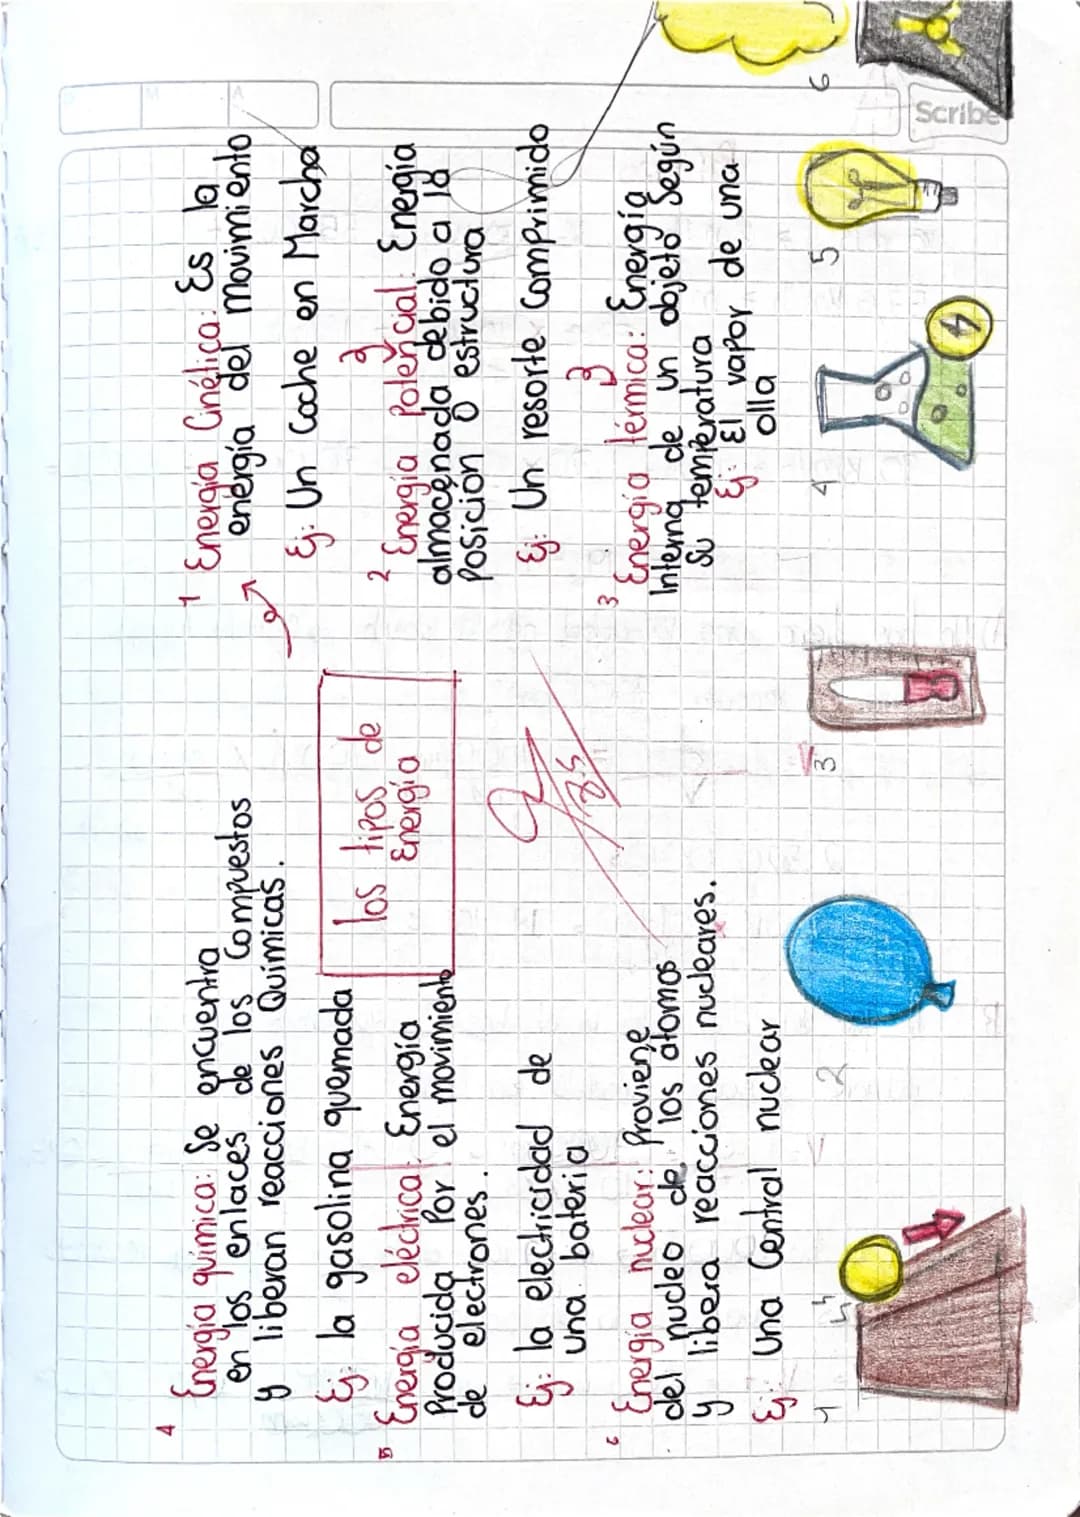 D M A
Scribe
los tipos de
Energía
1 Energía Cinética: Es la
energía del movimiento
Ej: Un Coche en Marcha
2 Energía Potencial: Energía
almacenada debido a la
posición o estructura
Ej: Un resorte Comprimido
3 Energía térmica: Energía
Interna de un objeto Según
Su temperatura
Ej: El vapor de una
olla
4 Energía química: Se encuentra
en los enlaces de los Compuestos
y liberan reacciones Químicas.
Ej: la gasolina quemada
5 Energía eléctrica: Energía
Producida Por el movimiento
de electrones.
Ej: la electricidad de
una batería
6 Energía nuclear: Proviene
del nucleo de los atomos
y libera reacciones nucleares.
Ej: Una Central nuclear
1 2 3 4 5 6